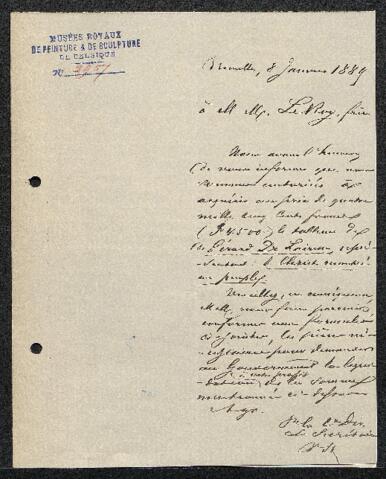 MUSÉES ROYAUX
DE PEINTURE & DE SCULPTURE
DE BELGIQUE
No
Bruxelles, 8 Janvier 1889
à M M. Le Roy, frères
Nous avons l'honneur
de vous informer que nous
sommes autorisés à
acquérir au prix de quatre
mille cinq cents francs
(F 4500) le tableau de
Gérard De Lairesse, repré-
sentant: le Christ
peuple
Veuillez, en conséquence,
M M. nous faire parvenir,
conforme aux formules
ci-jointes, les pièces né-
cessaires pour demander
au Gouvernement la liqui-
dation à votre profit de la somme
mentionnée ci-dessus
Agr.
Pr la Con Dir
Le Secrétaire